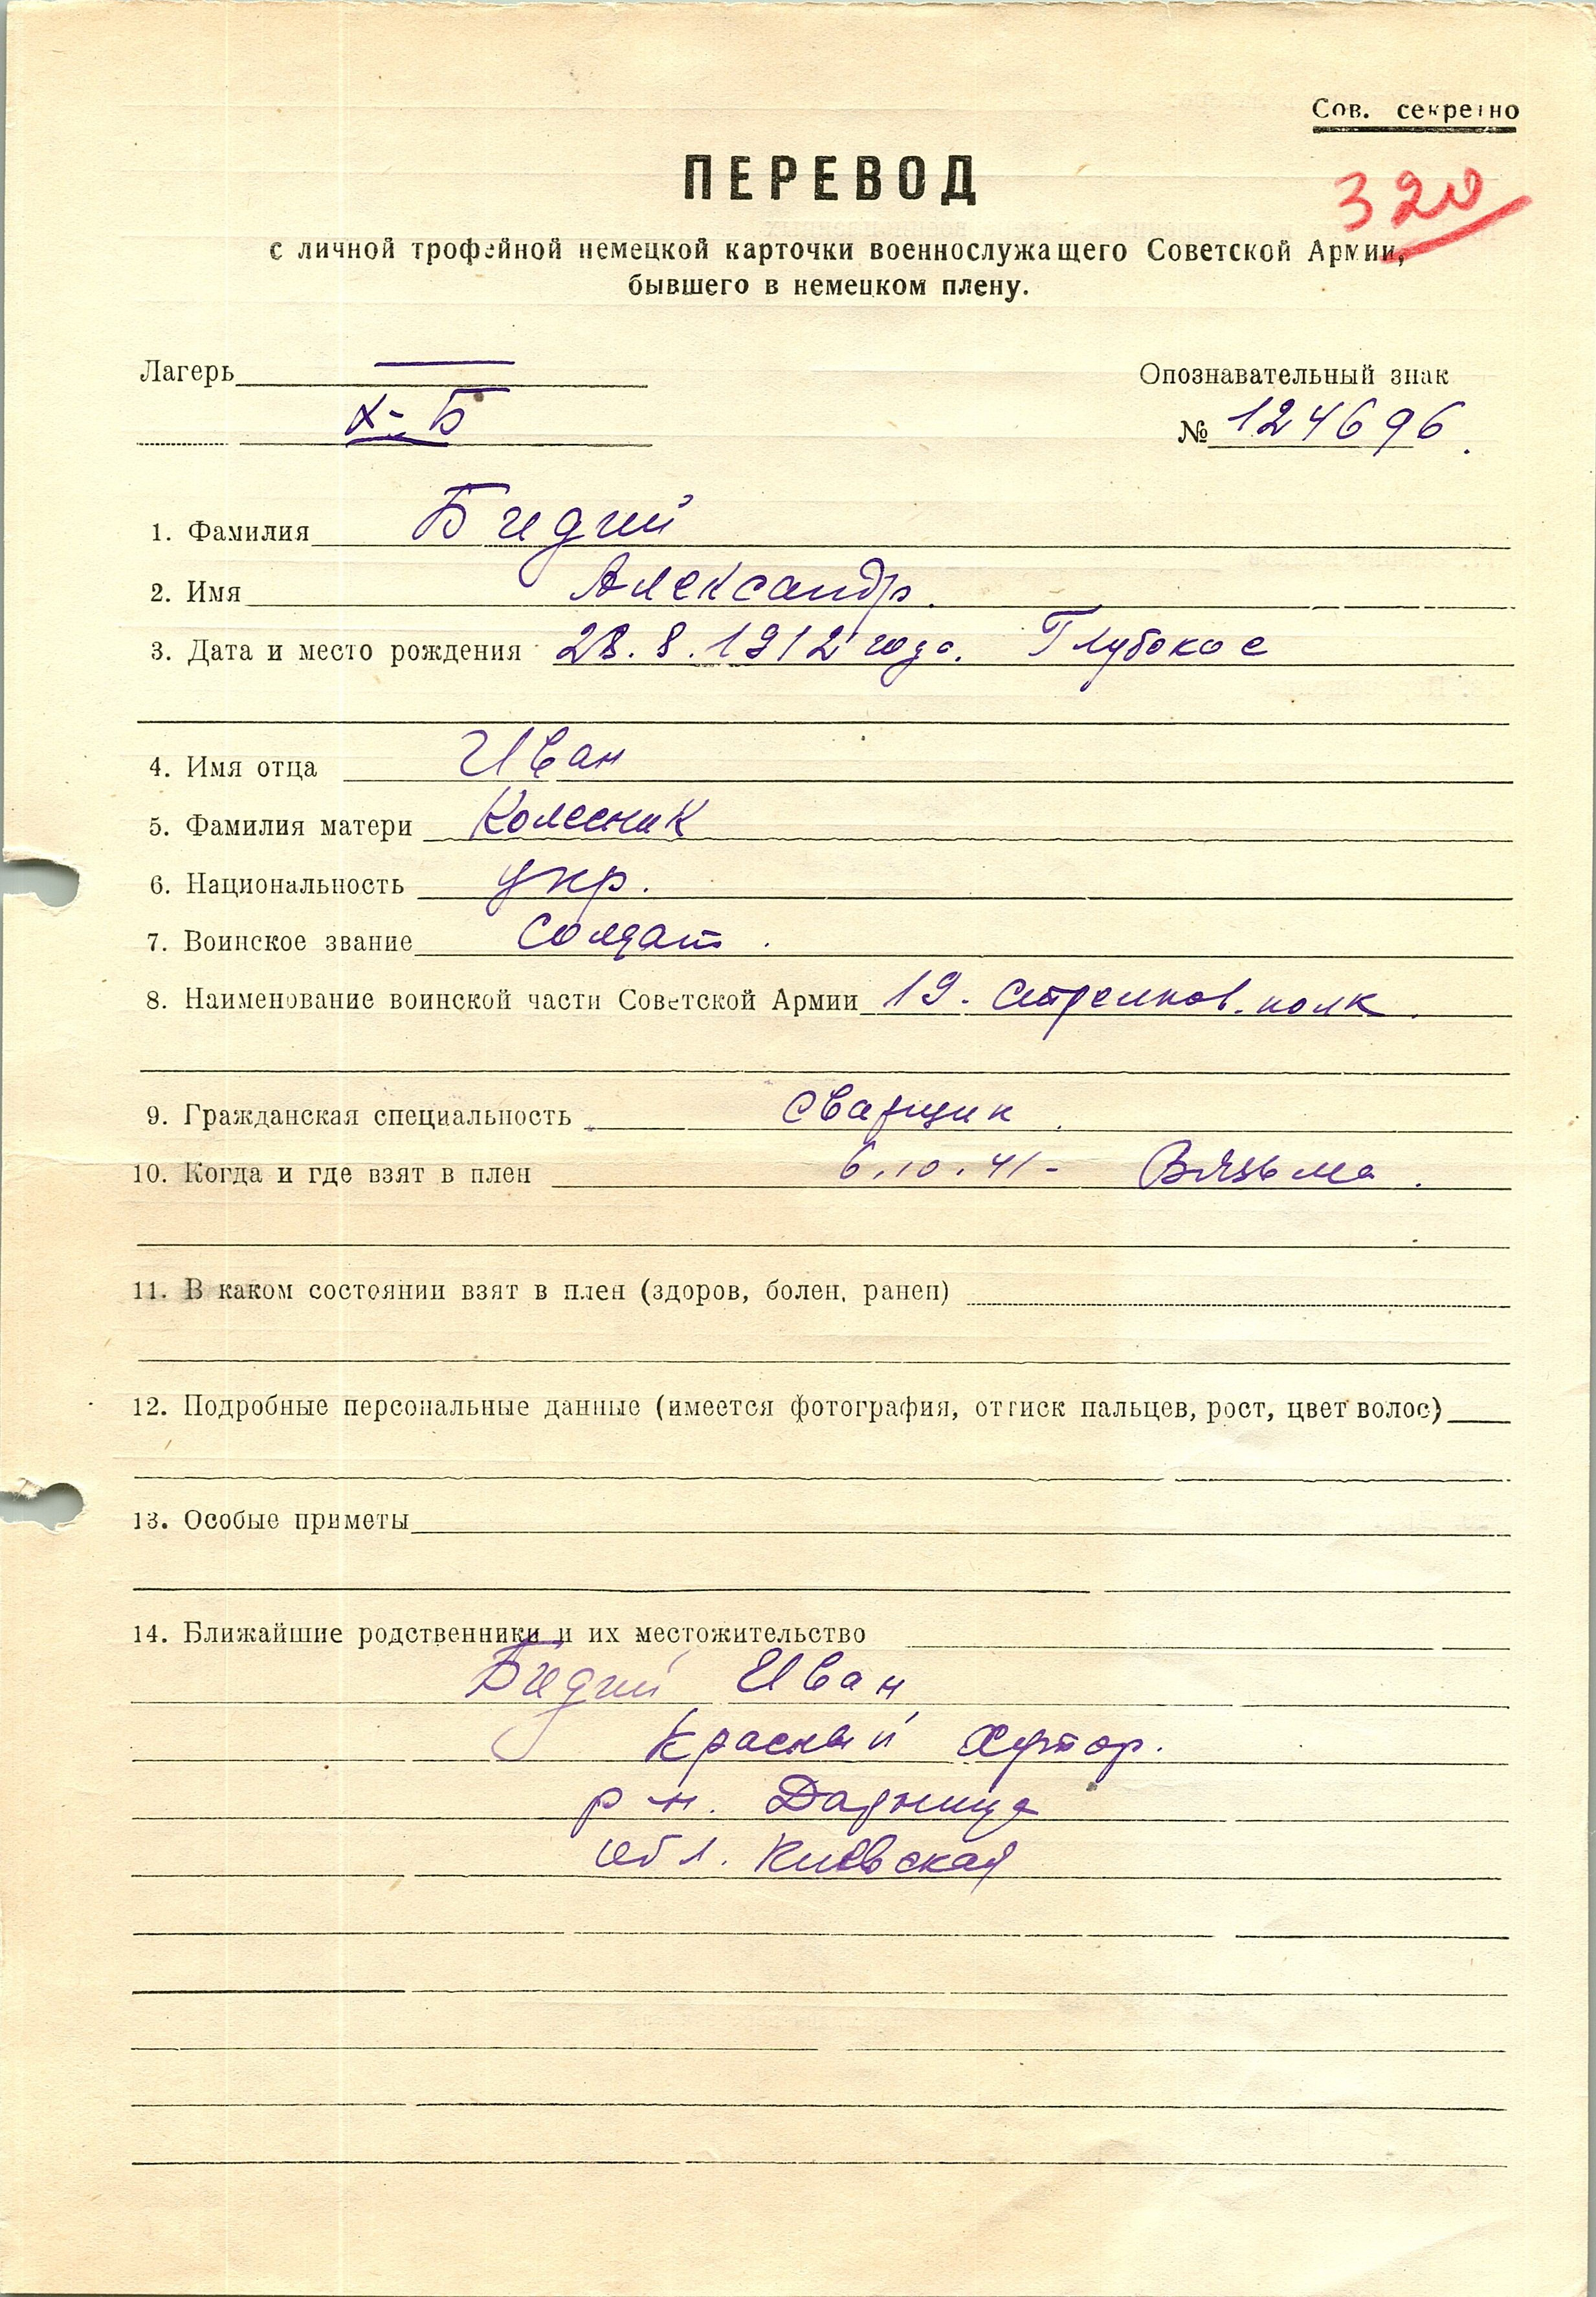 Сов. секретно
ПЕРЕВОД
320
с личной трофейной немецкой карточки военнослужащего Советской Армии,
бывшего в немецком плену.
Лагерь
Опознавательный знак
X-Б
№ 124696.
1. Фамилия Бидий
2. Имя Александр.
3. Дата и место рождения 28.8.1912 года. Глубокое
4. Имя отца Иван
5. Фамилия матери Колесник
6. Национальность укр.
7. Воинское звание Солдат.
8. Наименование воинской части Советской Армии 19. стрелков. полк.
9. Гражданская специальность сварщик.
10. Когда и где взят в плен 6.10.41- Вязьма.
11. В каком состоянии взят в плен (здоров, болен, ранен)
12. Подробные персональные данные (имеется фотография, оттиск пальцев, рост, цвет волос)
13. Особые приметы
14. Ближайшие родственники и их местожительство
Бидий Иван
Красный Хутор.
р-н. Дарница
обл. Киевская